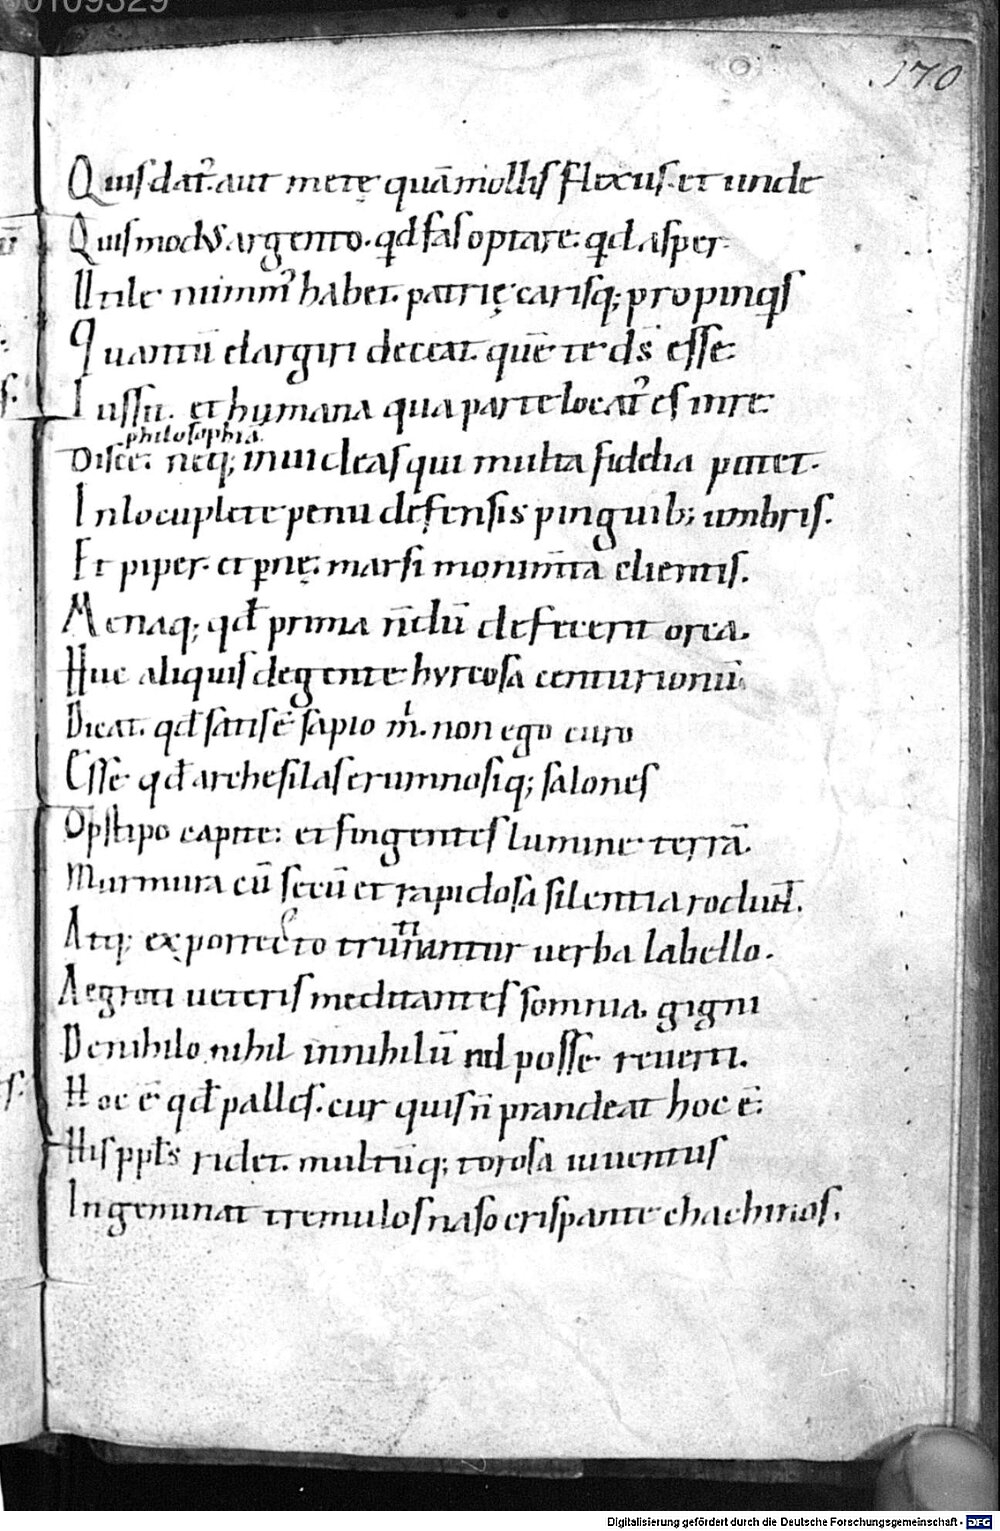 00109329
170
Quis dat᷑. aut metę quā mollis flexus. et unde
Quis modus argento. qđ fas optare. qđ asper
Utile nummꝰ habet. patrię carisq; propinqis
Quantū elargiri deceat. quē te ds̄ esse
Iussit. et humana qua parte locat᷑ es in re
philosophia
Disce. neq; inuideas qui multa fidelia putet.
In locuplete penu defensis pinguib; umbris.
Et piper. et pnę. marsi monumta clientis.
Menaq; qđ prima ndū defecerit orca.
Huc aliquis de gente hyrcosa centurionū
Dicat. qđ satis ē sapio m. non ego curo
Esse qđ archesilas erumnosiq; salones
Opstipo capite. et fingentes lumine terrā.
Murmura cū secū et rapidosa silentia rodunt.
Atq; exporrecto trutinantur uerba labello.
Aegroti ueteris meditantes somnia. gigni
De nihilo nihil in nihilū nil posse reuerti.
Hoc ē qđ palles. cur quis n̄ prandeat hoc ē.
His ppls ridet. multūq; torosa iuuentus
Ingeminat tremulos naso crispante chachinos.
Digitalisierung gefördert durch die Deutsche Forschungsgemeinschaft - DFG